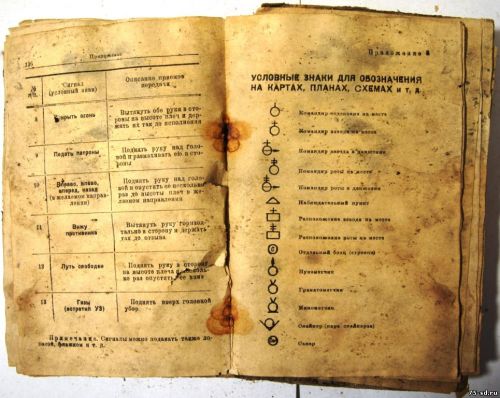 136
Приложение
№ пп.
Сигнал
(условный знак)
Описание приемов
передачи
8
Открыть огонь
Вытянуть обе руки в сто-
роны на высоте плеч и дер-
жать их так до исполнения
9
Подать патроны
Поднять руку над голо-
вой и размахивать ею в сто-
роны
10
Вправо, влево,
вперед, назад
(в желаемом направ-
лении)
Поднять руку над голо-
вой и опустить ее несколько
раз до высоты плеч в же-
лаемом направлении
11
Вижу
противника
Вытянуть руку горизон-
тально в сторону и держать
так до отзыва
12
Путь свободен
Поднять руку в сторону
на высоте плеча и
раз опустить ее вниз
13
Газы
(встретил УЗ)
Поднять вверх головной
убор.
Примечание. Сигналы можно подавать также ло-
патой, флажком и т. д.
Приложение 8
УСЛОВНЫЕ ЗНАКИ ДЛЯ ОБОЗНАЧЕНИЯ
НА КАРТАХ, ПЛАНАХ, СХЕМАХ и т. д.
Командир отделения на месте
Командир взвода на месте
Командир взвода в движении
Командир роты на месте
Командир роты в движении
Наблюдательный пункт
Расположение взвода на месте
Расположение роты на месте
Отдельный боец (стрелок)
Пулеметчик
Гранатометчик
Минометчик
Снайпер (пара снайперов)
Сапер
75-sd.ru